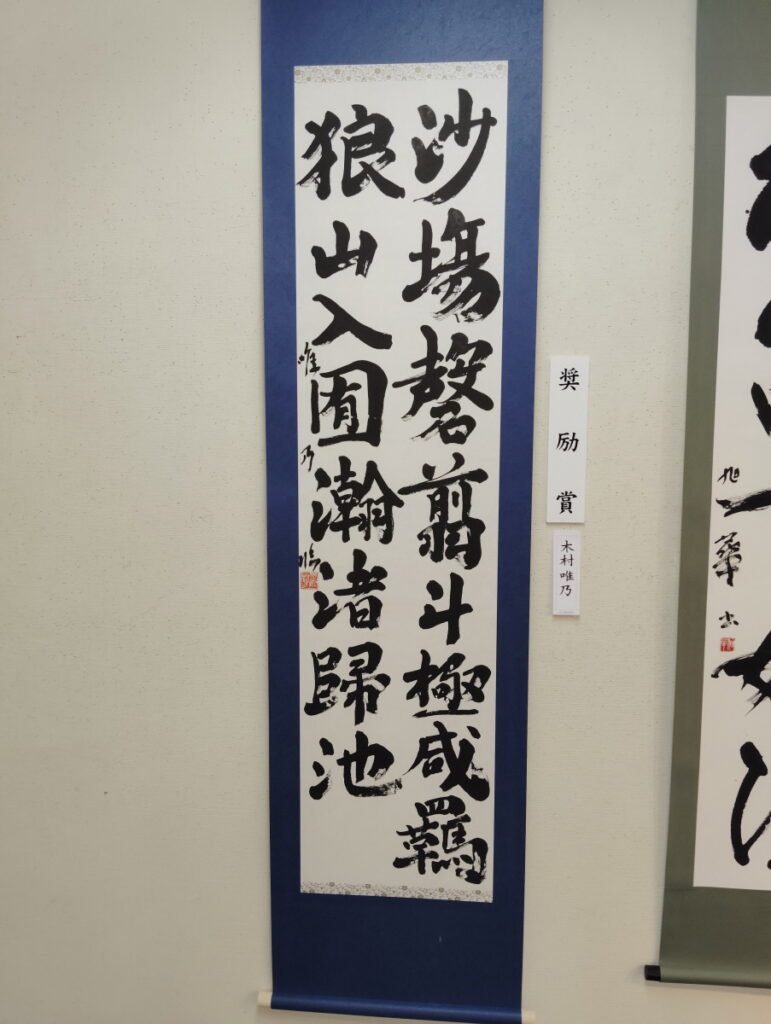 沙塲磬翦斗極咸羈
狼山入囿瀚渚歸池
唯乃臨
奨励賞
木村唯乃
旭華書